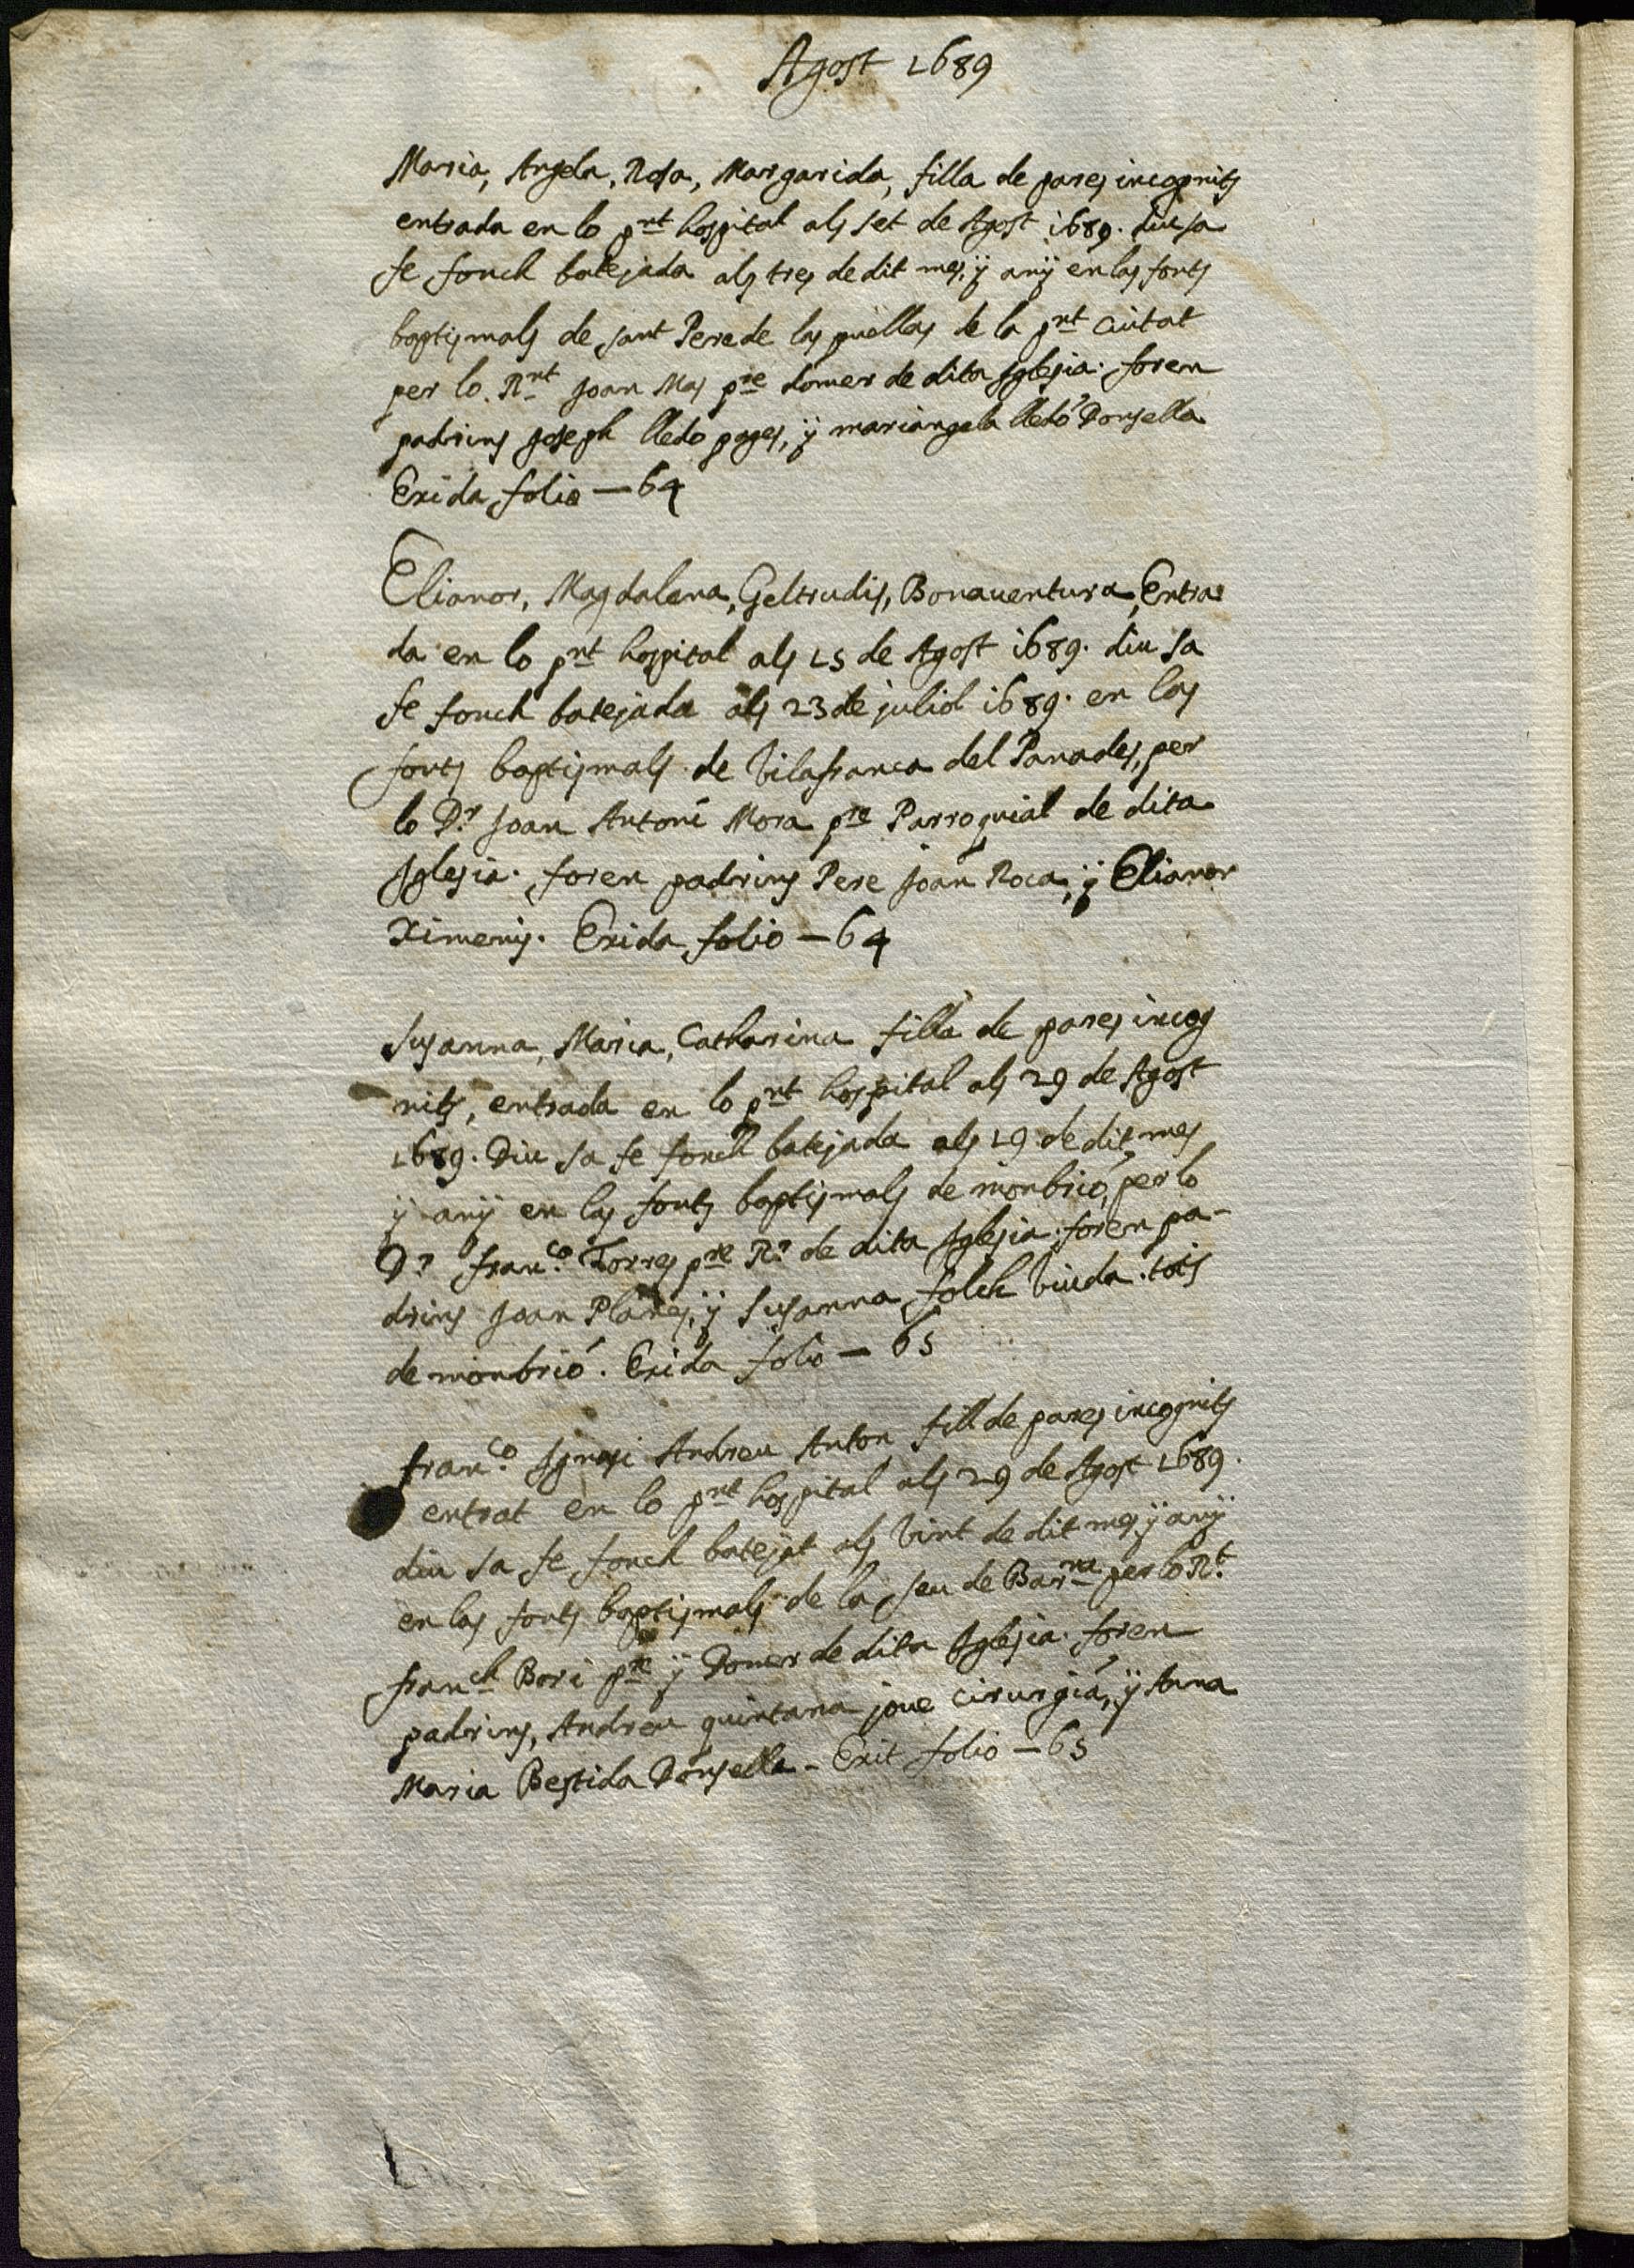 Agost 1689
Maria, Angela, Rosa, Margarida, filla de pares incognits
entrada en lo pnt hospital als set de Agost 1689. diu sa
fe fonch batejada als tres de dit mes, ÿ anÿ en las fonts
baptismals de sant Pere de las puellas de la pnt Ciutat
per lo Rnt Joan Mas pre domer de dita Iglesia. foren
padrins Joseph lledo pages, ÿ mariangela lledó Donsella
Exida folio — 64
Elianor, Magdalena, Geltrudis, Bonaventura, Entra
da en lo pnt hospital als 15 de Agost 1689. diu sa
fe fonch batejada als 23 de juliol 1689. en las
fonts baptismals de Vilafranca del Panades, per
lo Dr Joan Antoni Mora pre Parroquial de dita
Iglesia. foren padrins Pere Joan Roca, ÿ Elianor
Ximenis. Exida folio — 64
Susanna, Maria, Catharina filla de pares incog
nits, entrada en lo pnt hospital als 29 de Agost
1689. Diu sa fe fonch batejada als 19 de dit mes
ÿ anÿ en las fonts baptismals de monbrió, per lo
Dr franco Torres pre Rr de dita Iglesia. foren pa-
drins Joan Planes, ÿ Susanna folch viuda. tots
de monbrió. Exida folio — 65
franco Ignasi Andreu Anton fill de pares incognits
entrat en lo pnt hospital als 29 de Agost 1689.
diu sa fe fonch batejat als vint de dit mes, ÿ anÿ
en las fonts baptismals de la seu de Barna per lo Rt
franch Bori pre ÿ Domer de dita Iglesia. foren
padrins, Andreu quintana jove cirurgiá, ÿ Anna
Maria Bestida Donsella - Exit folio — 65